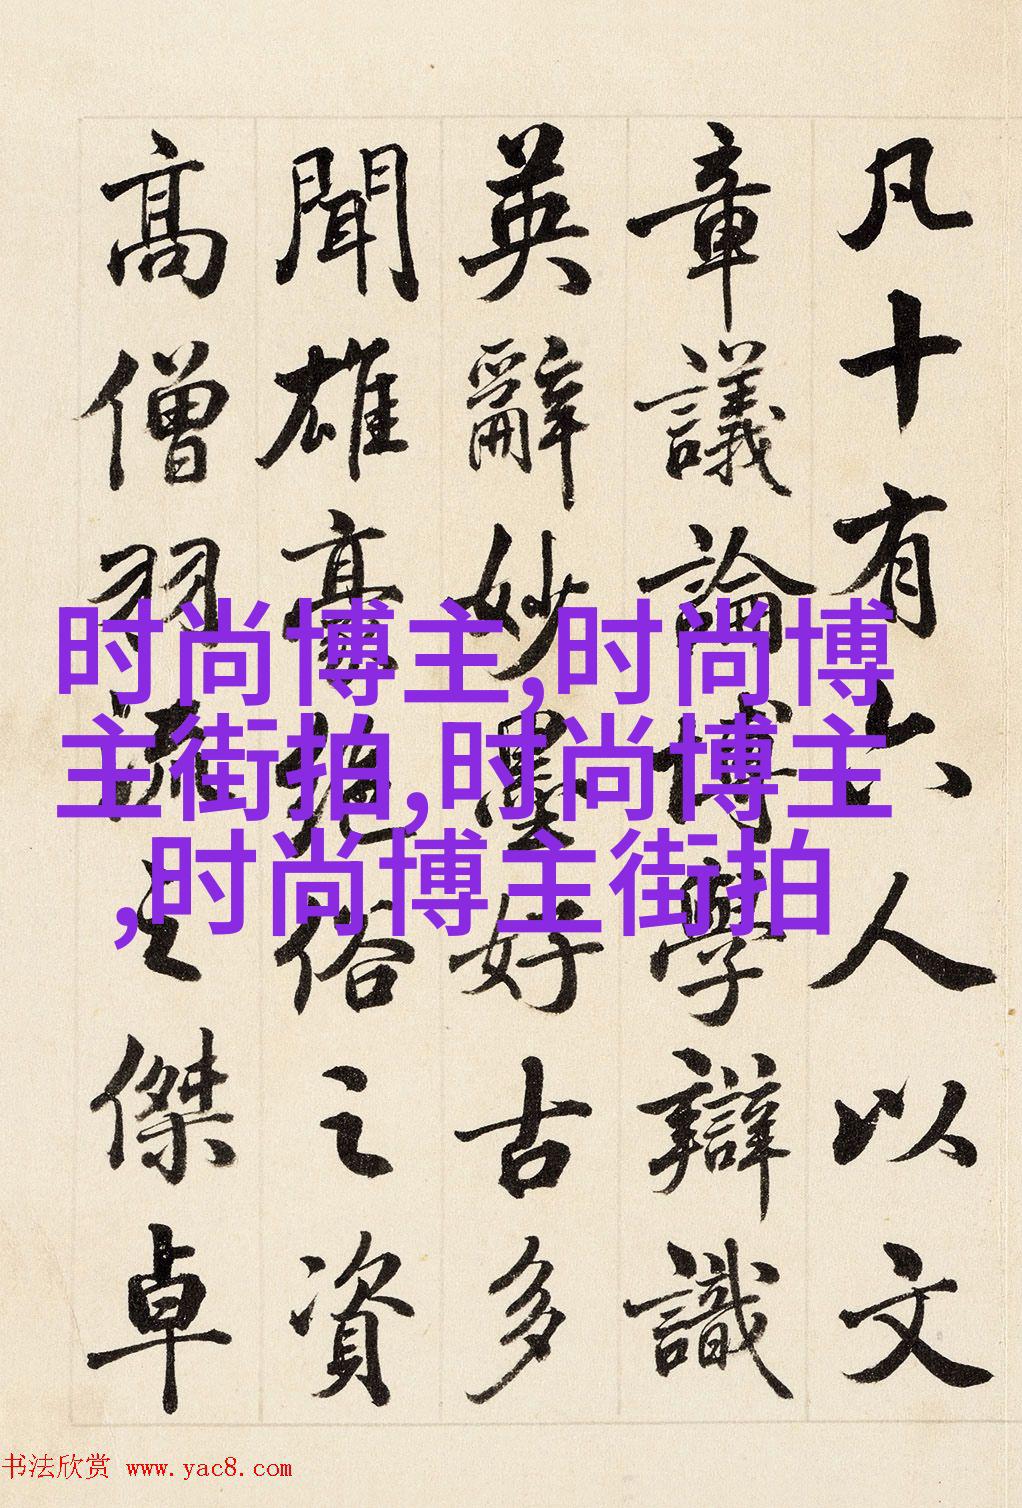 凡十有六人以文
章議論博學辯識
英辭妙墨好古多
聞雄豪絕俗之資
高僧羽流之傑卓
时尚博主,时尚博
主街拍,时尚博主
,时尚博主街拍
书法欣赏 www.yac8.com